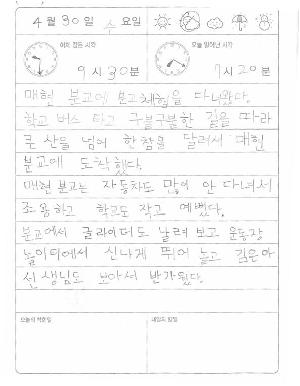 4월 30일 수요일
어제 잠든 시각
오늘 일어난 시각
9시 30분
7시 20분
매현 분교에 분교체험을 다녀왔다.
학교 버스 타고 구불구불한 길을 따라
큰 산을 넘어 한참을 달려서 매현
분교에 도착했다.
매현 분교는 자동차도 많이 안 다녀서
조용하고 학교도 작고 예뻤다.
분교에서 글라이더도 날려 보고 운동장
놀이터에서 신나게 뛰어 놀고 김은아
선생님도 보아서 반가웠다.
오늘의 착한일
내일의 할일